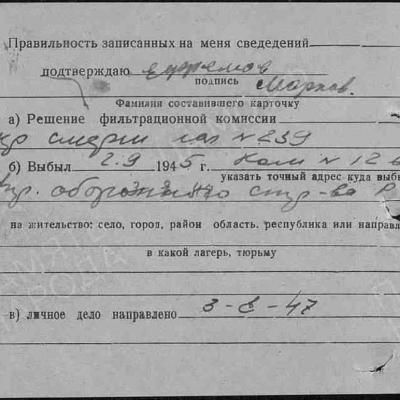 Правильность записанных на меня сведедений
подтверждаю Ефремов
подпись Марков.
Фамилия составившего карточку
а) Решение фильтрационной комиссии
смерш лаг №259
б) Выбыл 2.9 1945 г. Колм № 12 в
указать точный адрес куда выбы
оборонного стр-ва Р
на жительство: село, город, район область. республика или направл
в какой лагерь, тюрьму
в) личное дело направлено 3-8-47